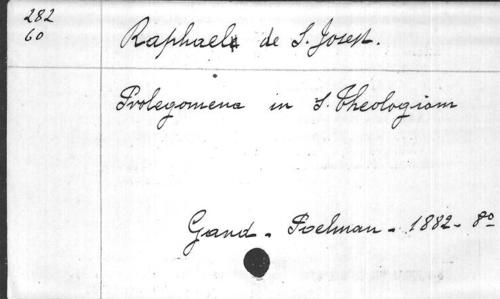 282
60
Raphael de S. Josef.
Prolegomena in S. Theologiam
Gand. Poelman - 1882 - 8o